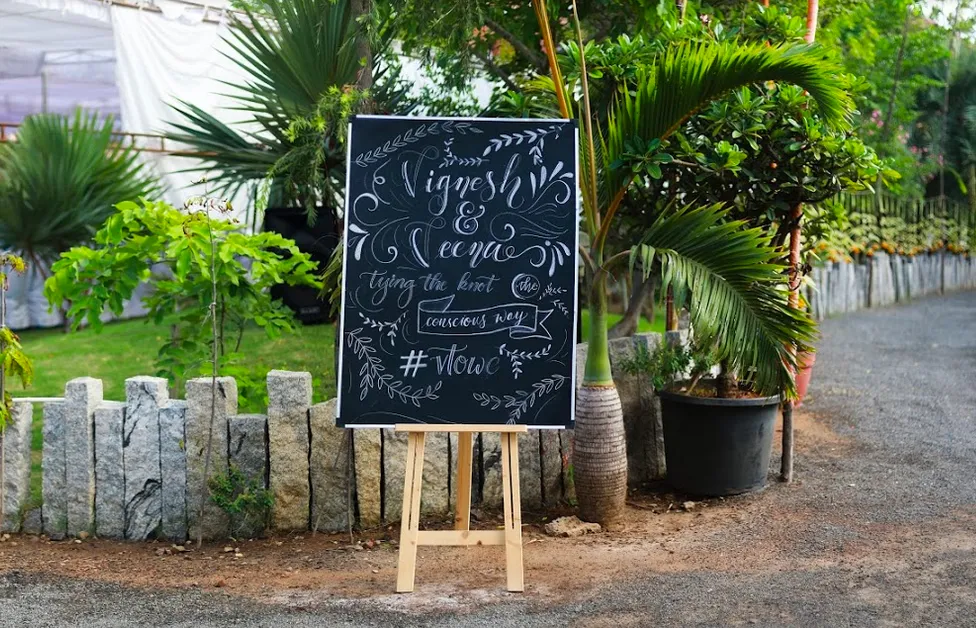 Vignesh
&
Veena
tying the knot the
conscious way
#vtowc